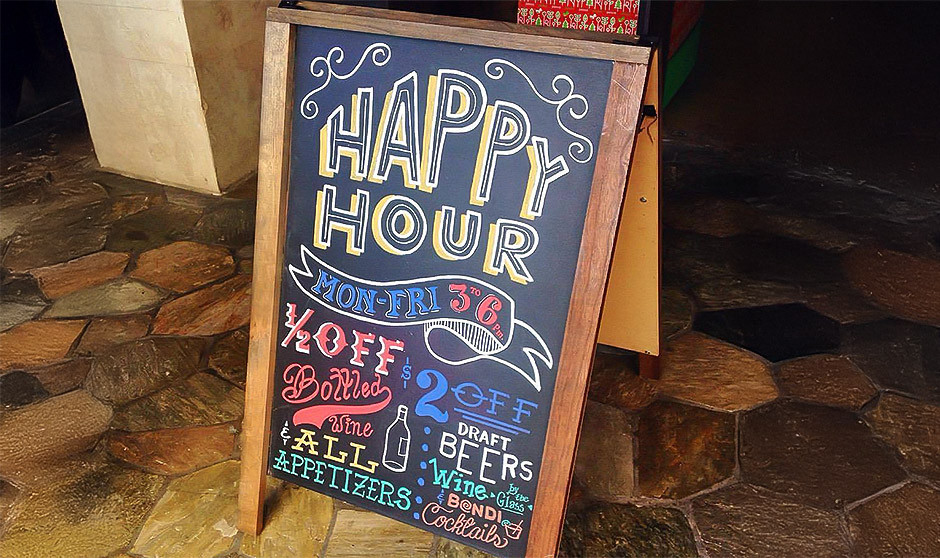 HAPPY
HOUR
MON-FRI 3 TO 6 Pm
½ OFF
Bottled
Wine
& ALL
APPETIZERS
$2 OFF
DRAFT
BEERS
Wine by the Glass
& BONDI
Cocktails